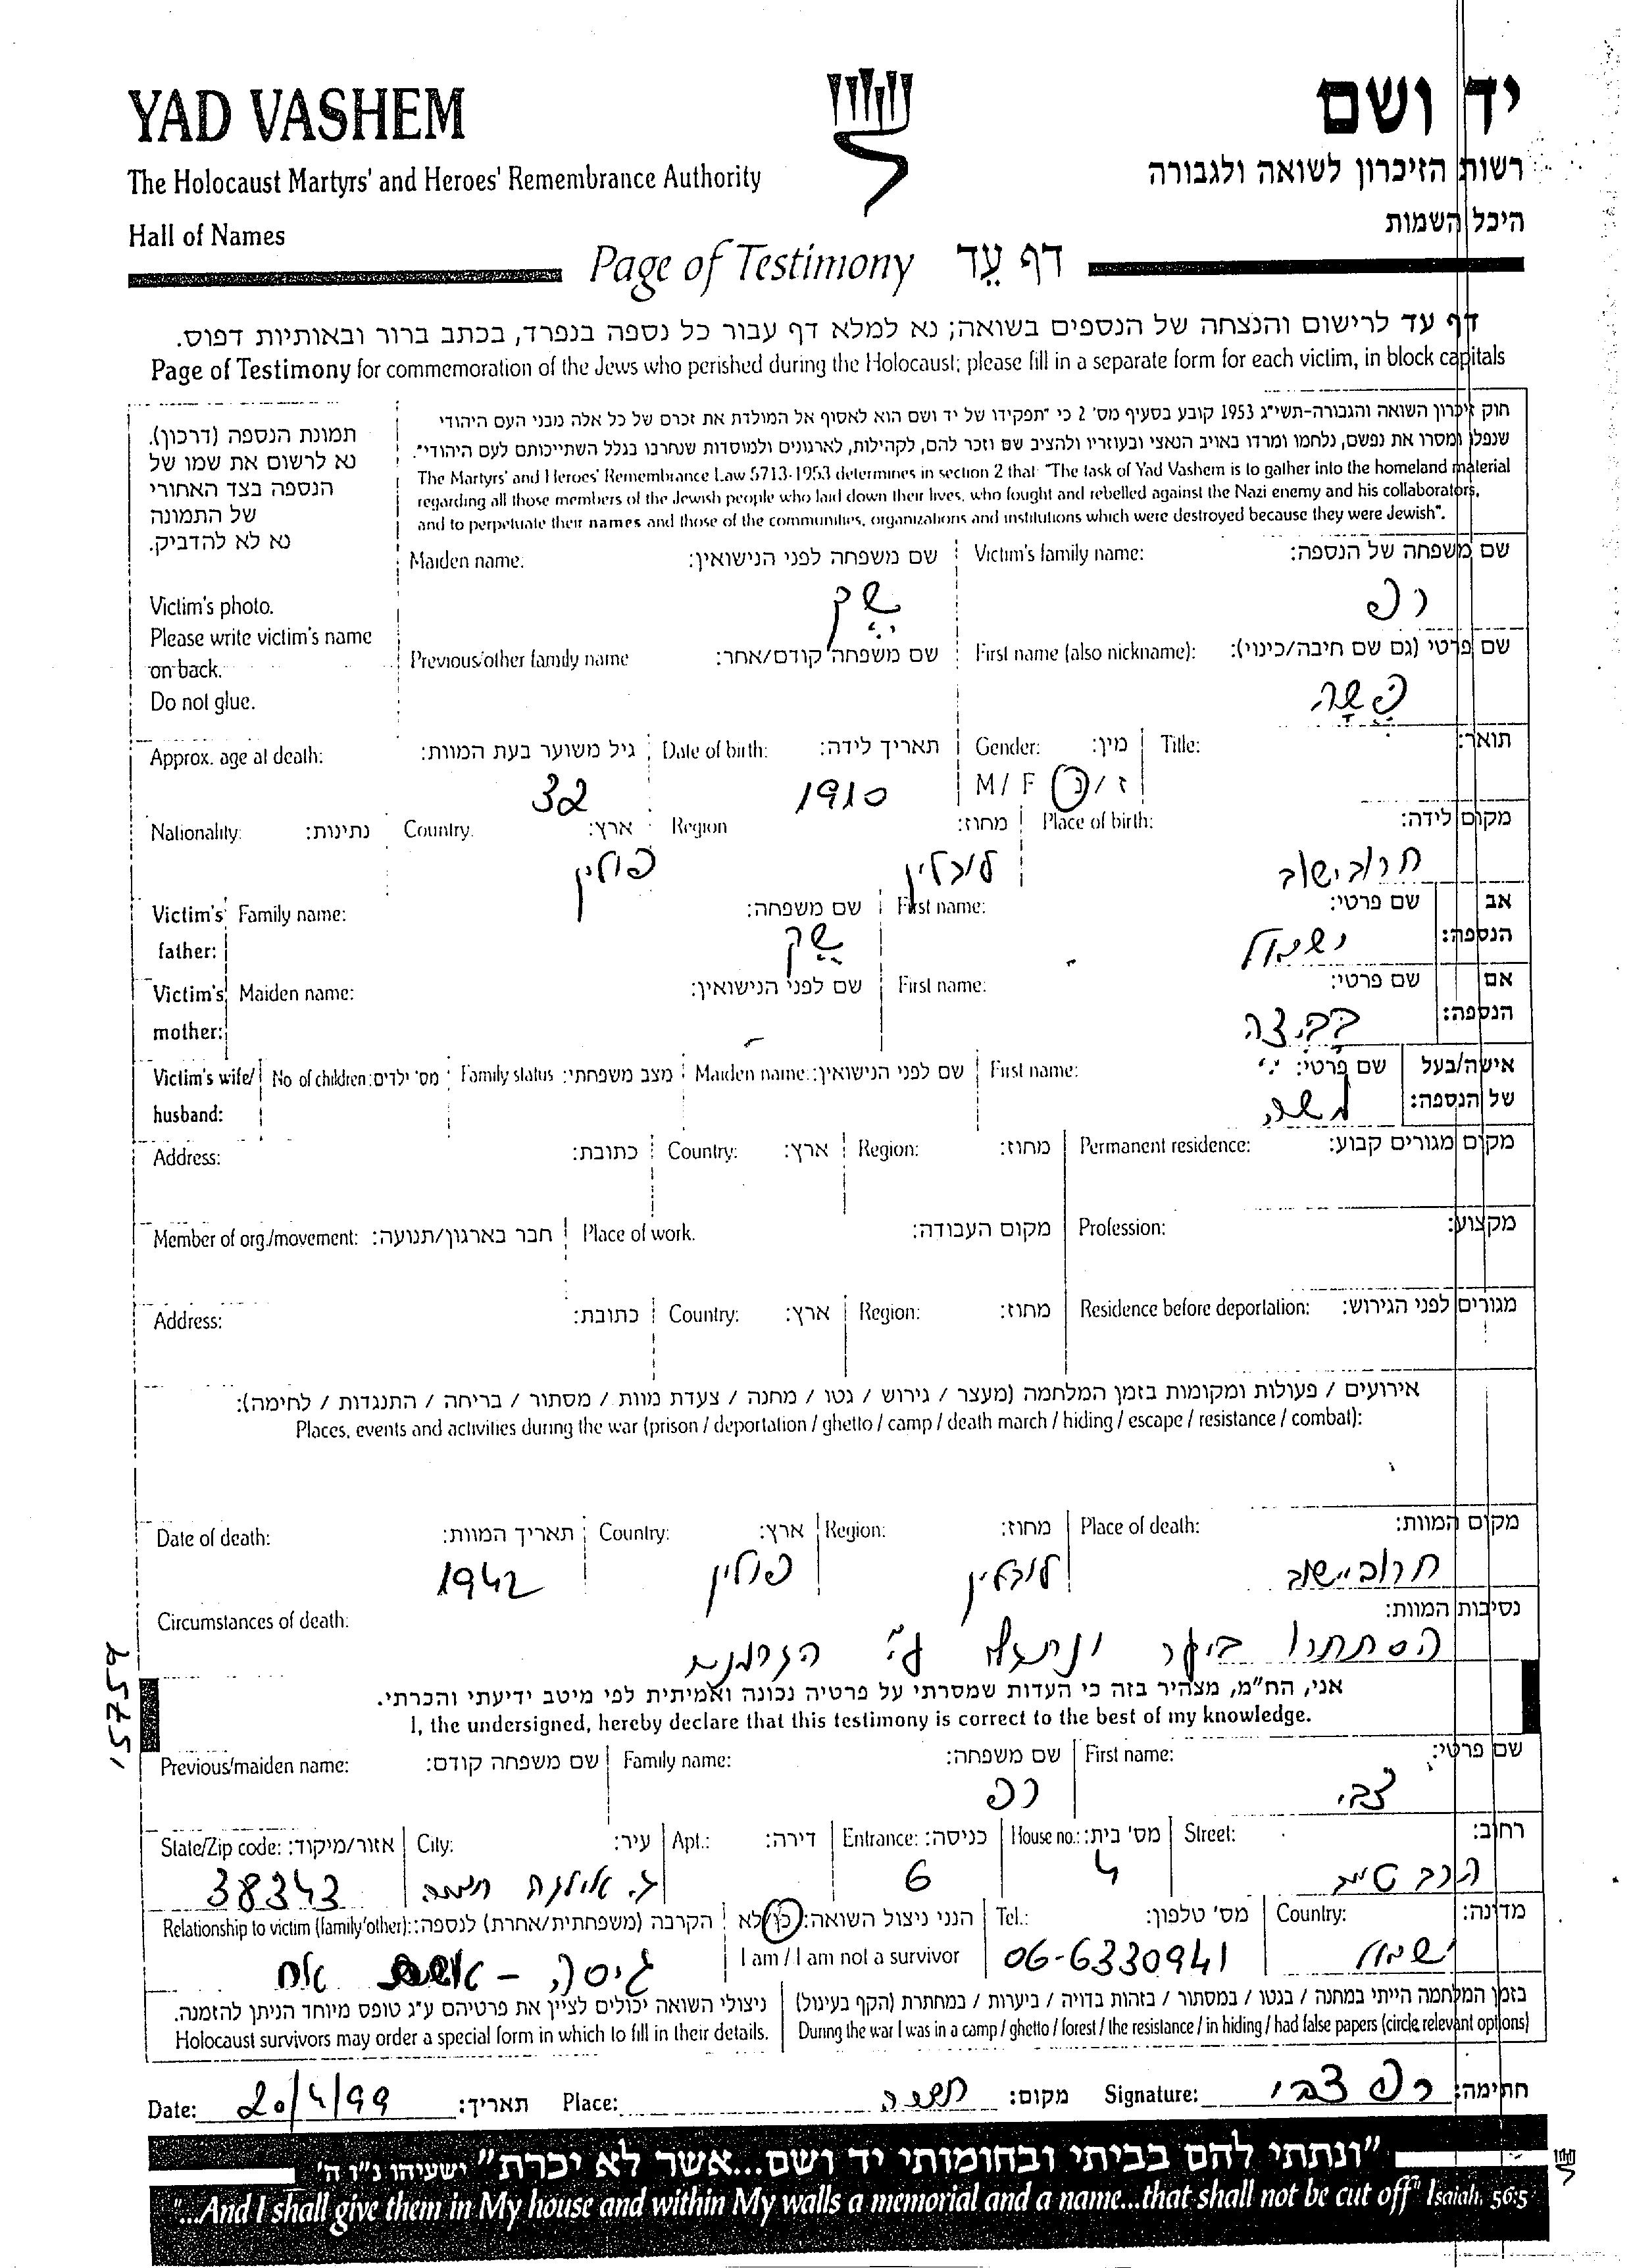 YAD VASHEM
יד ושם
The Holocaust Martyrs' and Heroes' Remembrance Authority
רשות הזיכרון לשואה ולגבורה
Hall of Names
היכל השמות
Page of Testimony דף עֵד
דף עד לרישום והנצחה של הנספים בשואה; נא למלא דף עבור כל נספה בנפרד, בכתב ברור ובאותיות דפוס.
Page of Testimony for commemoration of the Jews who perished during the Holocaust; please fill in a separate form for each victim, in block capitals
תמונת הנספה (דרכון).
נא לרשום את שמו של
הנספה בצד האחורי
של התמונה
נא לא להדביק.
Victim's photo.
Please write victim's name
on back.
Do not glue.
חוק זיכרון השואה והגבורה-תשי"ג 1953 קובע בסעיף מס' 2 כי "תפקידו של יד ושם הוא לאסוף אל המולדת את זכרם של כל אלה מבני העם היהודי
שנפלו ומסרו את נפשם, נלחמו ומרדו באויב הנאצי ובעוזריו ולהציב שם וזכר להם, לקהילות, לארגונים ולמוסדות שנחרבו בגלל השתייכותם לעם היהודי".
The Martyrs' and Heroes' Remembrance Law 5713-1953 determines in section 2 that: "The task of Yad Vashem is to gather into the homeland material
regarding all those members of the Jewish people who laid down their lives, who fought and rebelled against the Nazi enemy and his collaborators,
and to perpetuate their names and those of the communities, organizations and institutions which were destroyed because they were Jewish".
שם משפחה של הנספה: Victim's family name: שם משפחה לפני הנישואין: Maiden name:
רפ שק
שם פרטי (גם שם חיבה/כינוי): First name (also nickname): שם משפחה קודם/אחר: Previous/other family name
פשה
תואר: Title: מין: Gender: תאריך לידה: Date of birth: גיל משוער בעת המוות: Approx. age at death:
ז / נ M / F 1910 32
מקום לידה: Place of birth: מחוז: Region ארץ: Country. נתינות: Nationality:
חרובישוב לובלין פולין
אב שם פרטי: First name: שם משפחה: Family name: Victim's
הנספה: father:
ישראל שק
אם שם פרטי: First name: שם לפני הנישואין: Maiden name: Victim's
הנספה: mother:
אישה/בעל שם פרטי: First name: שם לפני הנישואין: Maiden name: מצב משפחתי: Family status מס' ילדים: No of children: Victim's wife/
של הנספה: husband:
משה
מקום מגורים קבוע: Permanent residence: מחוז: Region: ארץ: Country: כתובת: Address:
מקצוע: Profession: מקום העבודה: Place of work. חבר בארגון/תנועה: Member of org./movement:
מגורים לפני הגירוש: Residence before deportation: מחוז: Region: ארץ: Country: כתובת: Address:
אירועים / פעולות ומקומות בזמן המלחמה (מעצר / גירוש / גטו / מחנה / צעדת מוות / מסתור / בריחה / התנגדות / לחימה):
Places, events and activities during the war (prison / deportation / ghetto / camp / death march / hiding / escape / resistance / combat):
מקום המוות: Place of death: מחוז: Region: ארץ: Country: תאריך המוות: Date of death:
חרוביישוב לובלין פולין 1942
נסיבות המוות: Circumstances of death:
הסתתרו ביער ונתגלו ע"י הגרמנים
15759
אני, הח"מ, מצהיר בזה כי העדות שמסרתי על פרטיה נכונה ואמיתית לפי מיטב ידיעתי והכרתי.
I, the undersigned, hereby declare that this testimony is correct to the best of my knowledge.
שם פרטי: First name: שם משפחה: Family name: שם משפחה קודם: Previous/maiden name:
צבי רפ
רחוב: Street: מס' בית: House no.: כניסה: Entrance: דירה: Apt.: עיר: City: אזור/מיקוד: State/Zip code:
הרב 4 6 ג. אילנה חדרה 38343
מדינה: Country: מס' טלפון: Tel.: הנני ניצול השואה: כן/לא הקרבה (משפחתית/אחרת) לנספה: Relationship to victim (family/other):
I am / I am not a survivor
ישראל 06-6330941 גיסה - אשת אח
בזמן המלחמה הייתי במחנה / בגטו / במסתור / בזהות בדויה / ביערות / במחתרת (הקף בעיגול)
During the war I was in a camp / ghetto / forest / the resistance / in hiding / had false papers (circle relevant options)
ניצולי השואה יכולים לציין את פרטיהם ע"ג טופס מיוחד הניתן להזמנה.
Holocaust survivors may order a special form in which to fill in their details.
חתימה: רפ צבי Signature: מקום: חדרה Place: תאריך: 20/4/99 Date:
"ונתתי להם בביתי ובחומותי יד ושם...אשר לא יכרת" ישעיהו נ"ו ה'
"...And I shall give them in My house and within My walls a memorial and a name...that shall not be cut off" Isaiah, 56:5